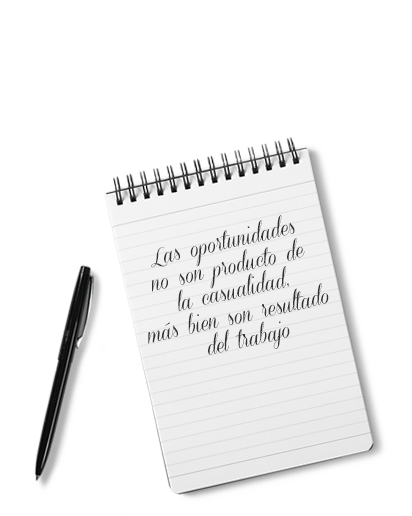 Las oportunidades
no son producto de
la casualidad,
más bien son resultado
del trabajo